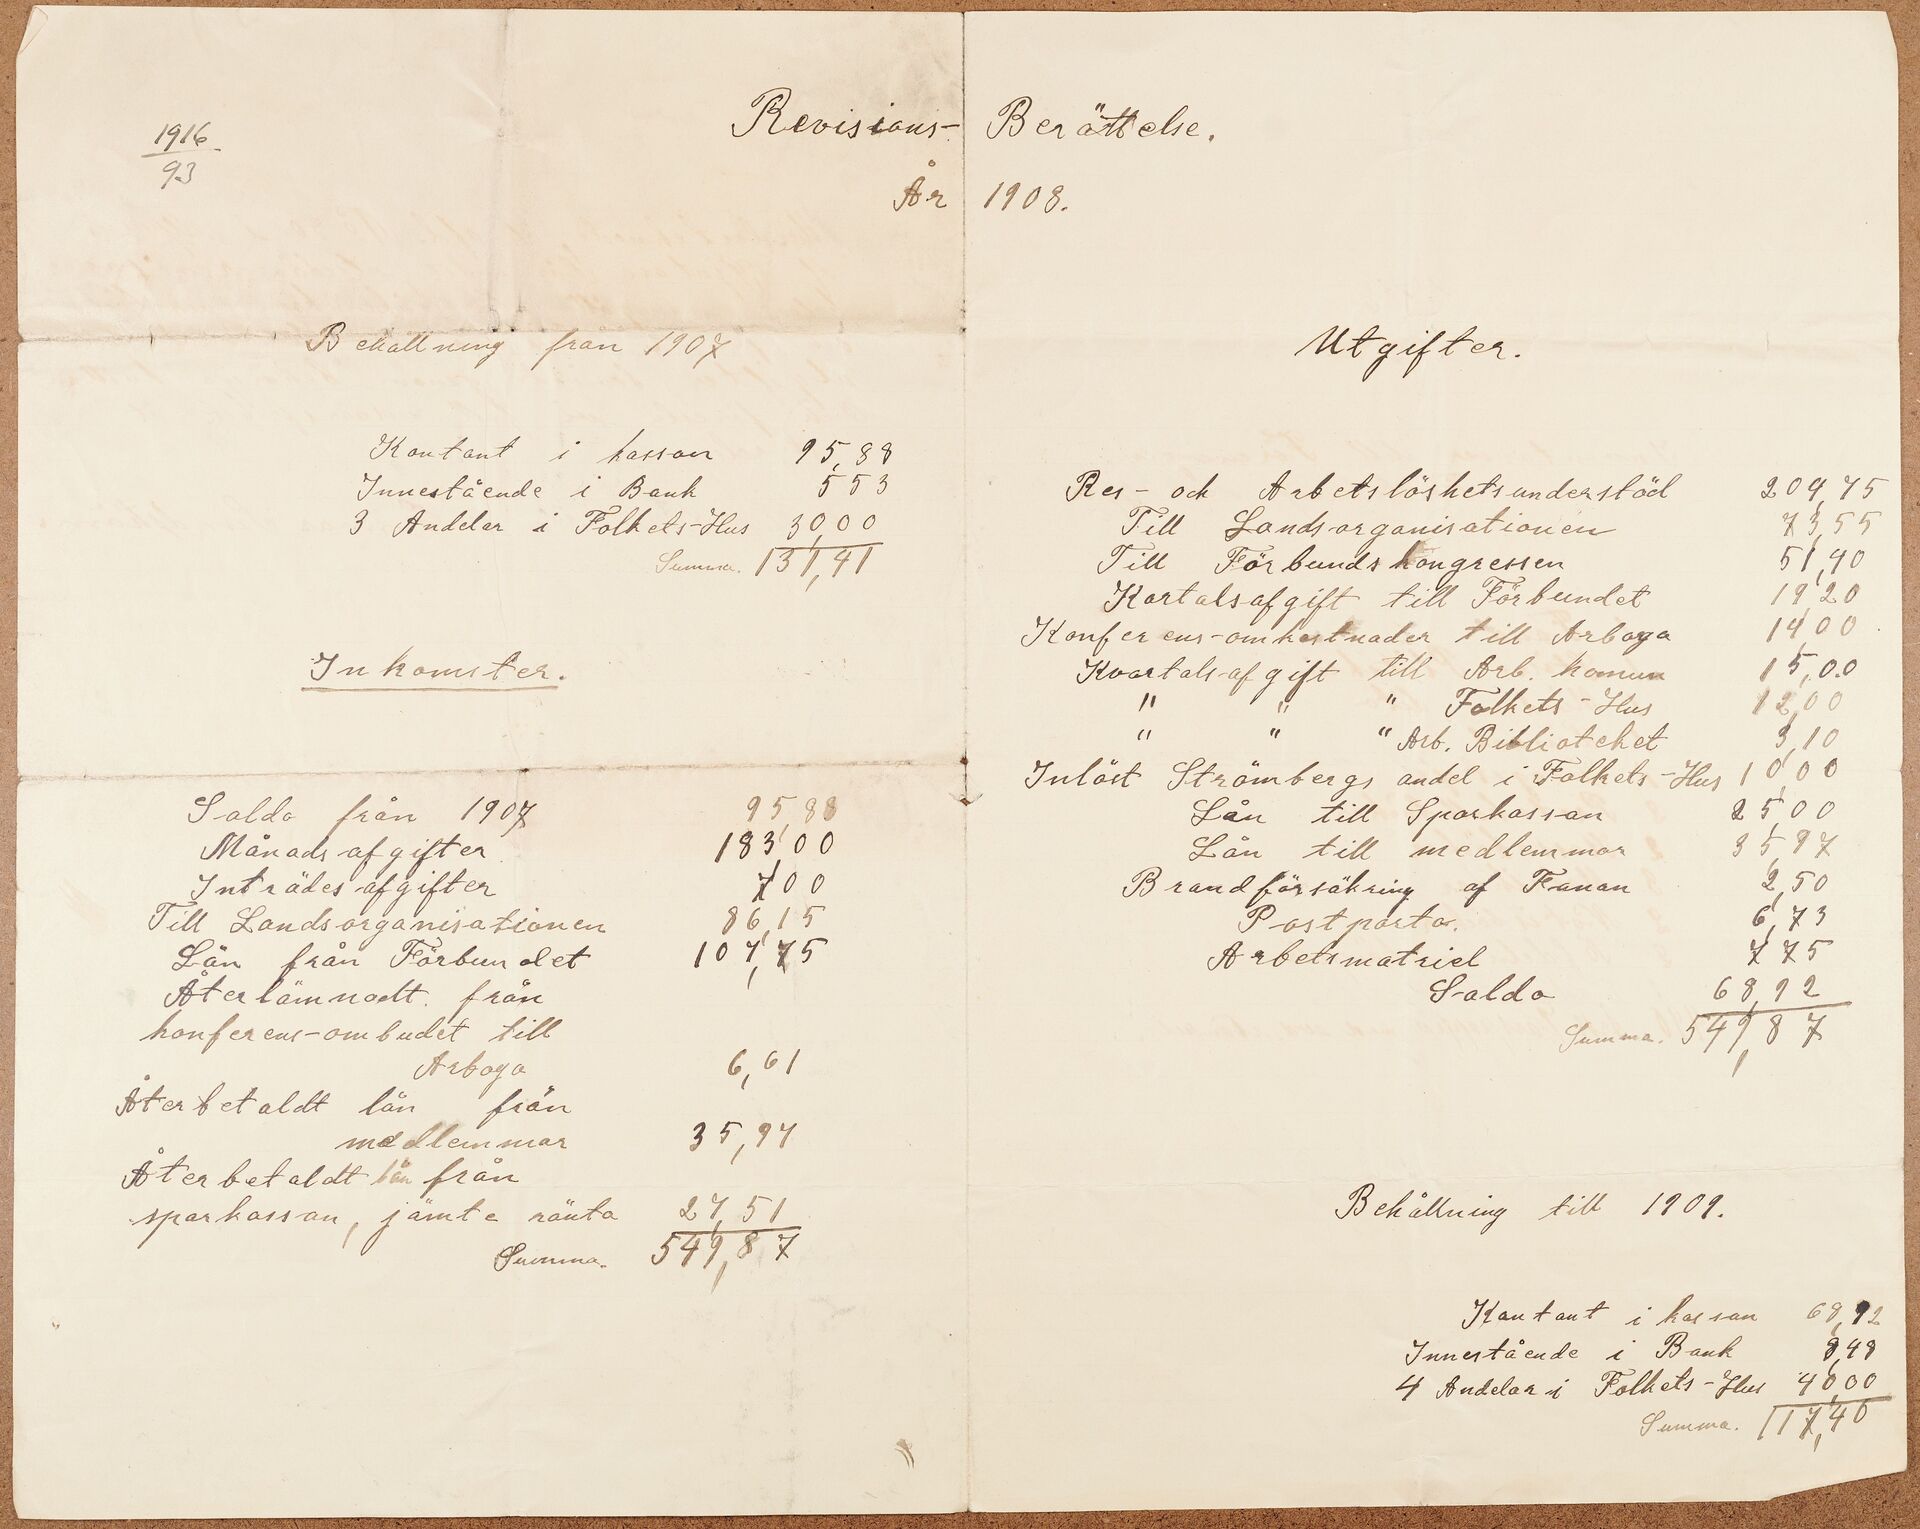 1916
93
Revisions- Berättelse.
År 1908.
Behållning från 1907
Kontant i kassan 95,88
Innestående i Bank 553
3 Andelar i Folkets-Hus 30,00
Summa. 131,41
Inkomster.
Saldo från 1907 95,88
Månadsafgifter 183,00
Inträdesafgifter 7,00
Till Landsorganisationen 86,15
Lån från Förbundet 107,75
Återlämnadt från
konferens-ombudet till
Arboga 6,61
Återbetaldt lån från
medlemmar 35,97
Återbetaldt lån från
sparkassan, jämte ränta 27,51
Summa. 549,87
Utgifter.
Res- och Arbetslöshetsunderstöd 204,75
Till Landsorganisationen 73,55
Till Förbundskongressen 51,40
Kortalsafgift till Förbundet 19,20
Konferens-omkostnader till Arboga 14,00
Kvartalsafgift till Arb. komun 15,00
" " " Folkets-Hus 12,00
" " " Arb. Biblioteket 3,10
Inlöst Strömbergs andel i Folkets-Hus 10,00
Lån till Sparkassan 25,00
Lån till medlemmar 35,97
Brandförsäkring af Fanan 2,50
Postporto. 6,73
Arbetsmatriel 7,75
Saldo 68,92
Summa. 549,87
Behållning till 1909.
Kontant i kassan 68,92
Innestående i Bank 8,48
4 Andelar i Folkets-Hus 40,00
Summa. 117,40